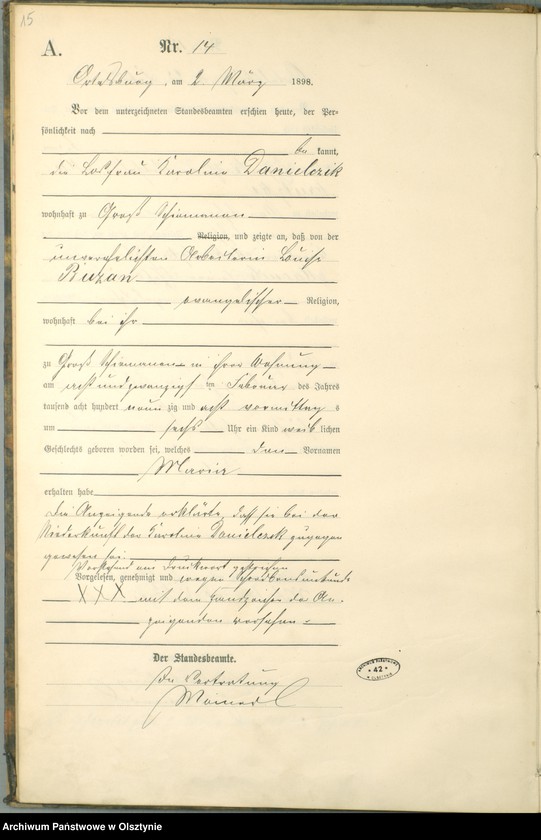 15
A.
Nr. 14
Ortelsburg, am 2. März 1898.
Vor dem unterzeichneten Standesbeamten erschien heute, der Per-
sönlichkeit nach
be kannt,
die Losfrau Karoline Danielczik
wohnhaft zu Groß Schiemanen
Religion, und zeigte an, daß von der
unverehelichten Arbeiterin
Buzan
evangelischer Religion,
wohnhaft bei ihr
zu Groß Schiemanen in ihrer Wohnung
am acht und zwanzigsten Februar des Jahres
tausend acht hundert neun zig und acht vormittags
um sechs Uhr ein Kind weib lichen
Geschlechts geboren worden sei, welches den Vornamen
Marie
erhalten habe
Die Anzeigende erklärte, daß sie bei der
Niederkunft der Karoline Danielczik zugegen
gewesen sei.
Vorstehend ein Druckwort gestrichen
Vorgelesen, genehmigt und wegen Schreibensunkunde
XXX mit dem Handzeichen der An-
zeigenden versehen
Der Standesbeamte.
In Vertretung
ARCHIWUM PAŃSTWOWE
* 42 *
W OLSZTYNIE
Archiwum Państwowe w Olsztynie